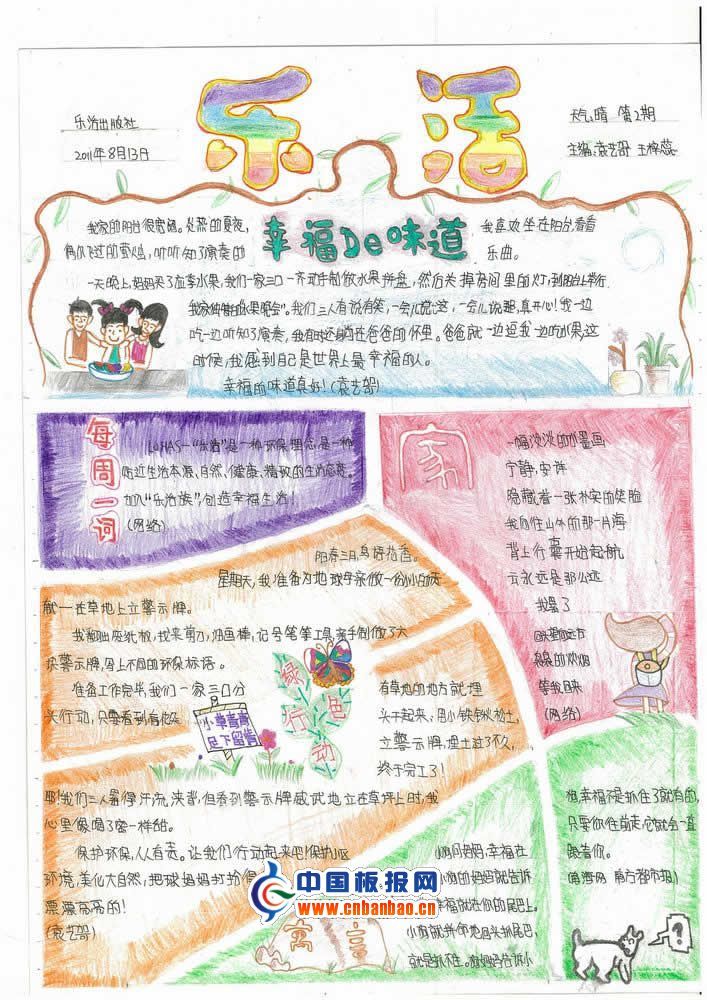 乐活
乐活出版社
2011年8月13日
天气:晴 第2期
主编:袁艺
幸福De味道
我家的阳台很宽阔。炎热的夏夜,
我喜欢坐在阳台看看
偶尔飞过的萤火虫,听听知了演奏的
乐曲。
一天晚上,妈妈买了应季水果,我们一家三口一齐动手制做水果拼盘,然后关掉房间里的灯,到阳台上举行
我家独特的“水果晚会”。我们三人有说有笑,一会儿说这,一会儿说那,真开心!我一边
吃一边听知了演奏,我有时还躺在爸爸的怀里。爸爸就一边逗我一边吃水果,这
时候,我感到自己是世界上最幸福的人。
幸福的味道真好!(袁艺)
每周一词
LOHAS—“乐活”是一种环保理念,是一种
贴近生活本源,自然、健康、精致的生活态度。
加入“乐活族”,创造幸福生活!
(网络)
家
一幅淡淡的水墨画
宁静,安详
隐藏着一张朴实的笑脸
我向往山外的那一片海
背上行囊开始起航
方永远是那么远
我累了
回头望向远方
袅袅的炊烟
等我回来
(网络)
阳春三月,鸟语花香。
星期天,我准备为地球母亲做一份小小的贡
献——在草地上立警示牌。
我翻出废纸板,找来剪刀、油画棒、记号笔等工具,亲手制做了六
块警示牌,写上不同的环保标语。
准备工作完毕,我们一家三口分
头行动,只要看到有
有草地的地方就埋
头干起来:用小铁锹松土,
立警示牌,埋土过了不久,
终于完工了!
绿色行动
小草青青
足下留情
耶!我们三人累得汗流浃背,但看到警示牌威武地立在草坪上时,我
心里像喝了蜜一样甜。
保护环保,人人有责。让我们行动起来吧!保护
环境,美化大自然,把球妈妈打扮得
漂漂亮亮的!
(袁艺)
寓言
小狗问妈妈,幸福在
小狗的妈妈就告诉
幸福就在你的尾巴上。
小狗就拼命地回头抓尾巴,
就是抓不住。狗妈妈告诉小
狗,幸福不是抓住了就有的,
只要你往前走,它就会一直
跟着你。
(南海网 南方都市报)
?
中国板报网
www.cnbanbao.cn